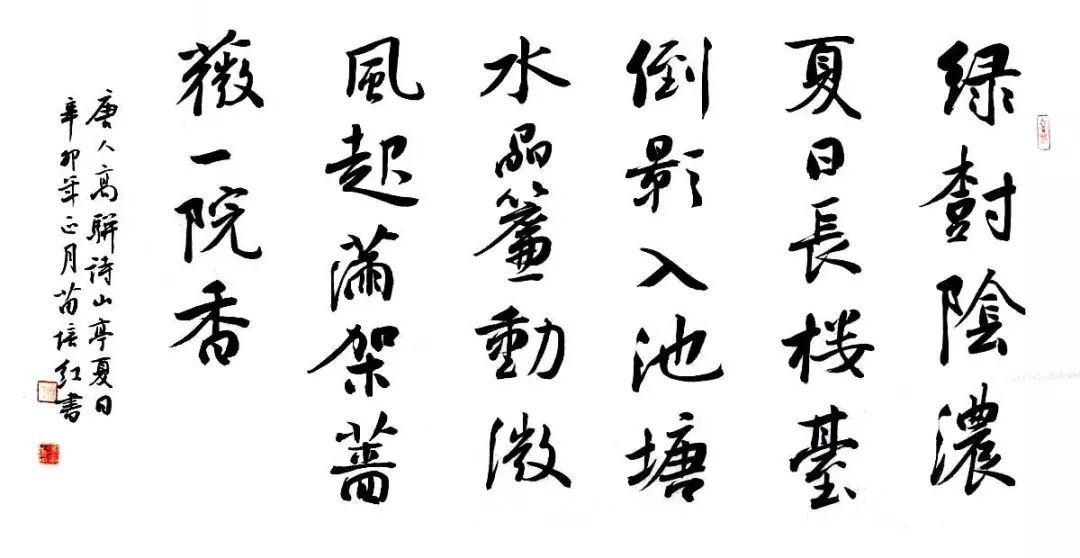 绿樹陰濃
夏日長楼臺
倒影入池塘
水晶簾動微
風起滿架薔
薇一院香
唐人高駢詩山亭夏日
辛卯年正月苗培红書